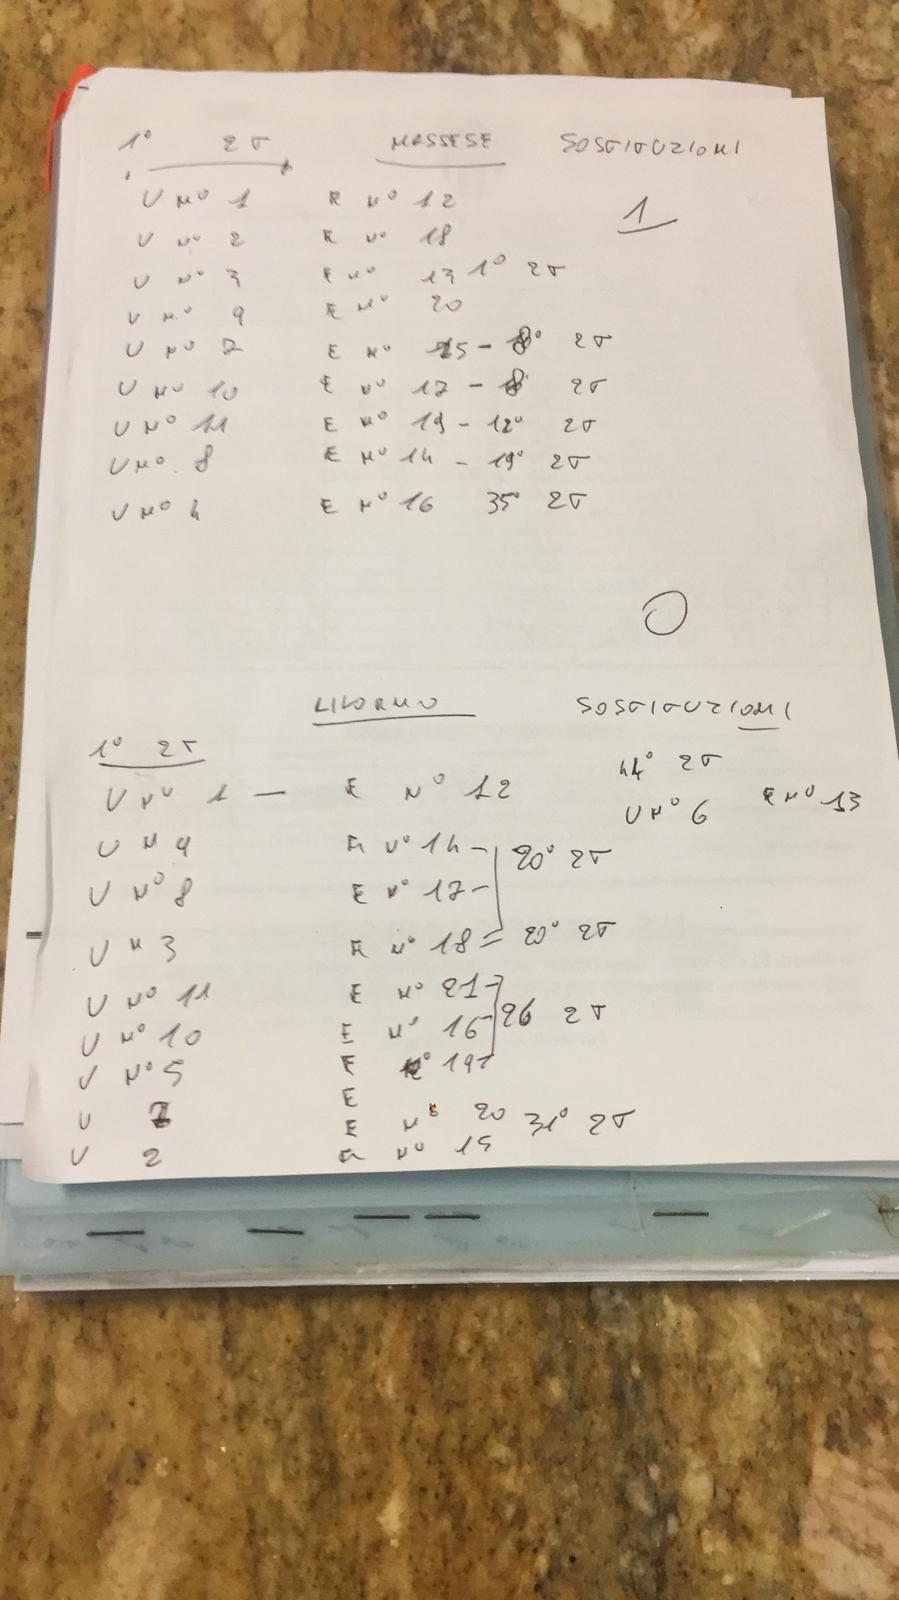 1° 2T MASSESE SOSTITUZIONI
U N° 1 E N° 12
1
U N° 2 E N° 18
U N° 3 E N° 13 1° 2T
U N° 9 E N° 20
U N° 7 E N° 15 - 8° 2T
U N° 10 E N° 17 - 8° 2T
U N° 11 E N° 19 - 12° 2T
U N° 8 E N° 14 - 19° 2T
U N° 4 E N° 16 35° 2T
0
LIVORNO SOSTITUZIONI
1° 2T
44° 2T
U N° 1 - E N° 12
U N° 6 E N° 13
U N 9 E N° 14 - 20° 2T
U N° 8 E N° 17 -
U N 3 E N° 18 = 20° 2T
U N° 11 E N° 21 -
U N° 10 E N° 16 - 26 2T
U N° 5 E N° 19 -
E
U 7 E N° 20 31° 2T
U 2 E N° 15